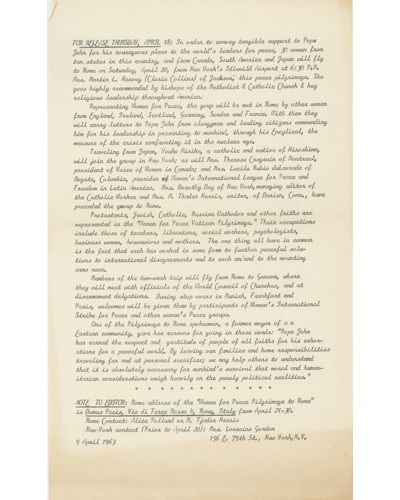 FOR RELEASE THURSDAY, APRIL 18: In order to convey tangible support to Pope
John for his courageous pleas to the world's leaders for peace, 30 women from
ten states in this country, and from Canada, South America and Japan will fly
to Rome on Saturday, April 20, from New York's Idlewild Airport at 6:30 P.M.
Mrs. Martin L. Harvey (Clarie Collins) of Jackson, this peace pilgrimage. She
goes highly recommended by bishops of the Methodist & Catholic Church & key
religious leadership throughout America.
Representing Women for Peace, the goup will be met in Rome by other women
from England, Ireland, Scotland, Germany, Sweden and France. With them they
will carry letters to Pope John from clergymen and leading citizens commending
him for his leadership in presenting to mankind, through his Encylical, the
measure of the crisis confronting it in the nuclear age.
Traveling from Japan, a catholic and native of Hiroshima,
will join the group in New York; as will Mrs. Therese Casgrain of Montreal,
president of Voice of Women in Canada; and Mrs. Lucila Rubio delaverde of
Bogata, Columbia, presiden of Women's International League for Peace and
Freedom in Latin America. Mrs. Dorothy Day of New York, managing editor of
the Catholic Worker and Mrs. A. Tjader Harris, writer, of Darien, Conn., have
preceded the group to Rome.
Protestants, Jewish, Catholic, Russian Orthodox and other faiths are
represented in the "Women for Peace Vatican Pilgrimage." Their occupations
include those of teachers, librarians, social workers, psychologists,
business women, housewives and mothers. The one thing all have in common
is the fact that each has worked in some form to further peaceful solu-
tions to international disagreements and to seek an end to the mounting
arms race.
Members of the two-week trip will fly from Rome to Geneva, where
they will meet with officials of the World Council of Churches, and at
disarmament delgations. During stop overs in Munich, Frankfort and
Paris, welcomes will be given them by participants of Women's International
Strike for Peace and other women's Peace groups.
One of the Pilgrimage to Rome spokesman, a former mayor of a n
Eastern community, gave her reasons for going in these words: "Pope John
has earned the respect and gratitude of people of all faiths for his exhor-
ations for a peaceful world. By leaving our families and home responsibilities
traveling far and at personal sacrifice; we may help others to understand
that it is absolutely necessary for mankind's survival that moral and human-
itarian considerations weigh heavily on the purely political realities."
* * * * * * * * * * * * * *
NOTE TO EDITOR: Rome address of the "Women for Peace Pilgrimage to Rome"
is Domus Pacis, Via di Torre Rossa 4, Rome, Italy from April 21-30.
Rome Contact: Alice Pollard or M. Tjader Harris
New York contact (Prior to April 20): Mrs. Lorraine Gordon
4 April 1963 196 E. 79th St., New York, N.Y.